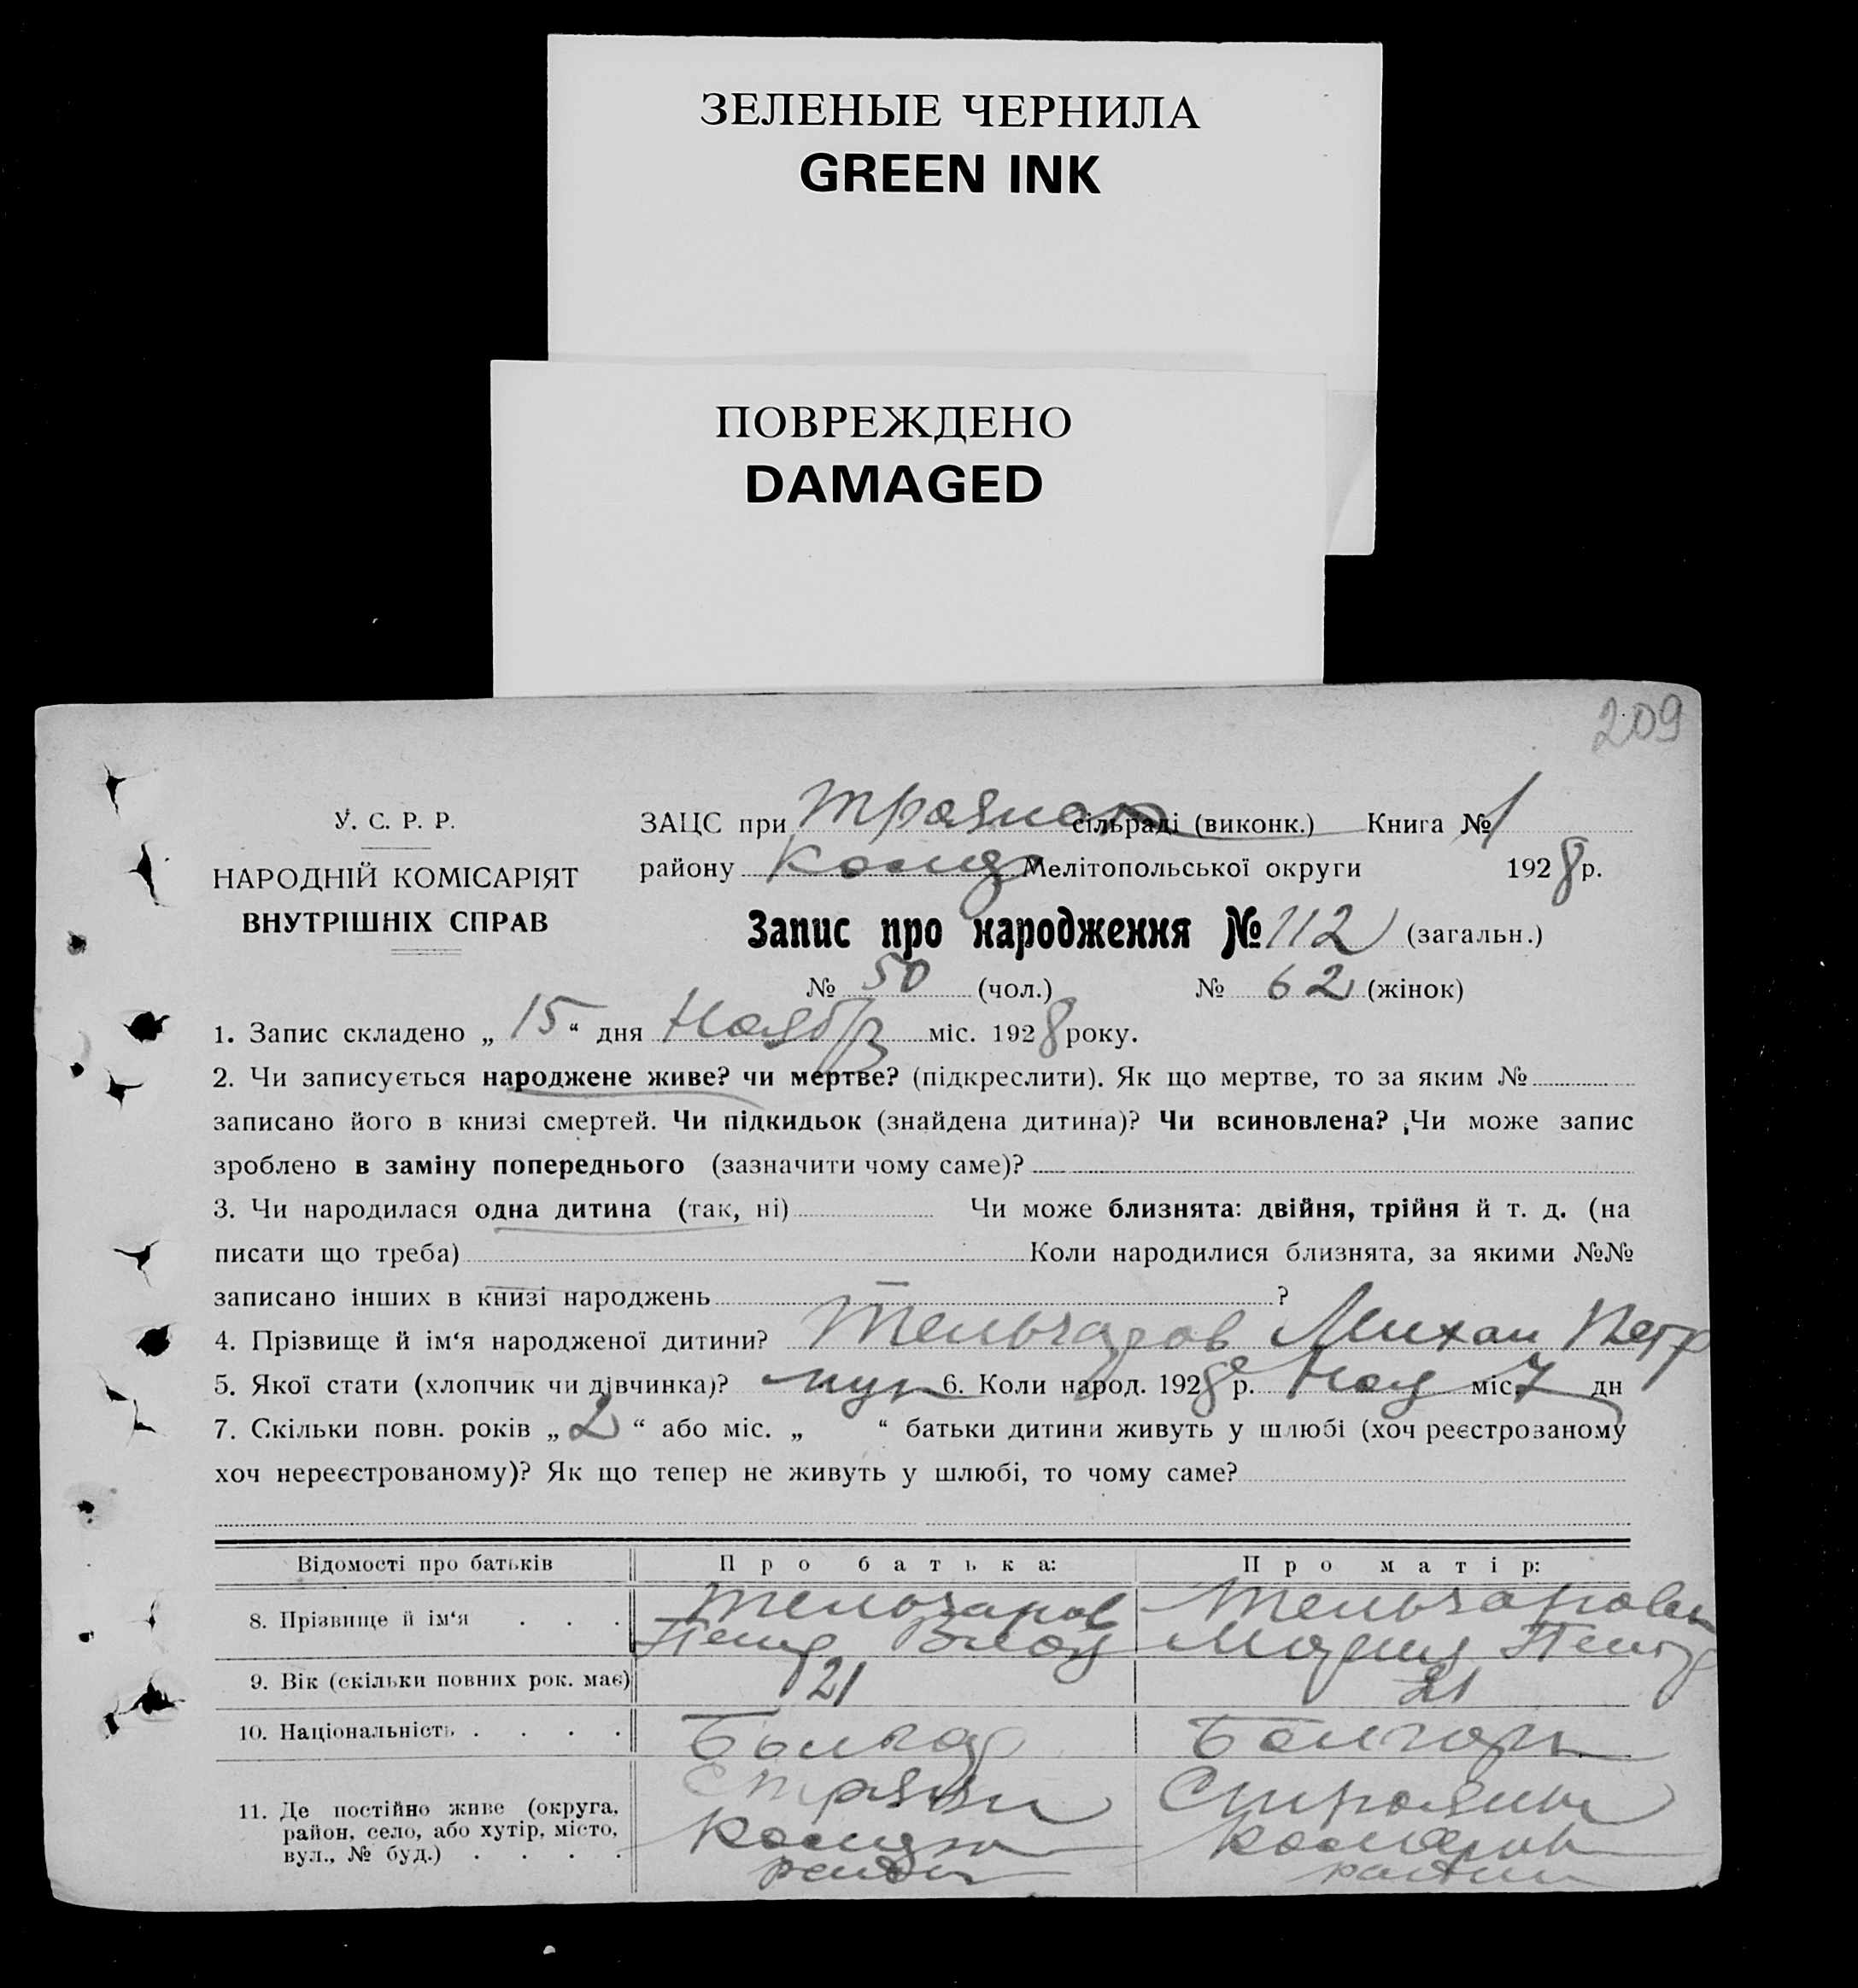 ЗЕЛЕНЫЕ ЧЕРНИЛА
GREEN INK
ПОВРЕЖДЕНО
DAMAGED
209
У. С. Р. Р.
НАРОДНІЙ КОМІСАРІЯТ
ВНУТРІШНІХ СПРАВ
ЗАЦС при Траянск сільраді (виконк.) Книга № 1
району Мелітопольської округи 1928 р.
Запис про народження № 112 (загальн.)
№ 50 (чол.) № 62 (жінок)
1. Запис складено „ 15 “ дня Ноября міс. 1928 року.
2. Чи записується народжене живе? чи мертве? (підкреслити). Як що мертве, то за яким №
записано його в книзі смертей. Чи підкидьок (знайдена дитина)? Чи всиновлена? Чи може запис
зроблено в заміну попереднього (зазначити чому саме)?
3. Чи народилася одна дитина (так, ні) Чи може близнята: двійня, трійня й т. д. (на
писати що треба) Коли народилися близнята, за якими №№
записано інших в книзі народжень ?
4. Прізвище й ім‘я народженої дитини? Тельчаров Михаил Петр
5. Якої стати (хлопчик чи дівчинка)? муж 6. Коли народ. 1928 р. Ноя міс. 7 дн
7. Скільки повн. років „ 2 “ або міс. „ “ батьки дитини живуть у шлюбі (хоч реєстрозаному
хоч нереєстрованому)? Як що тепер не живуть у шлюбі, то чому саме?
Відомості про батьків Про батька: Про матір:
8. Прізвище й ім‘я . . . Тельчаров Тельчарова
Петр Мария Петр
9. Вік (скільки повних рок. має) 21 21
10. Національність . . . . Болгар Болгарк
11. Де постійно живе (округа,
район, село, або хутір, місто,
вул., № буд.) . . . .